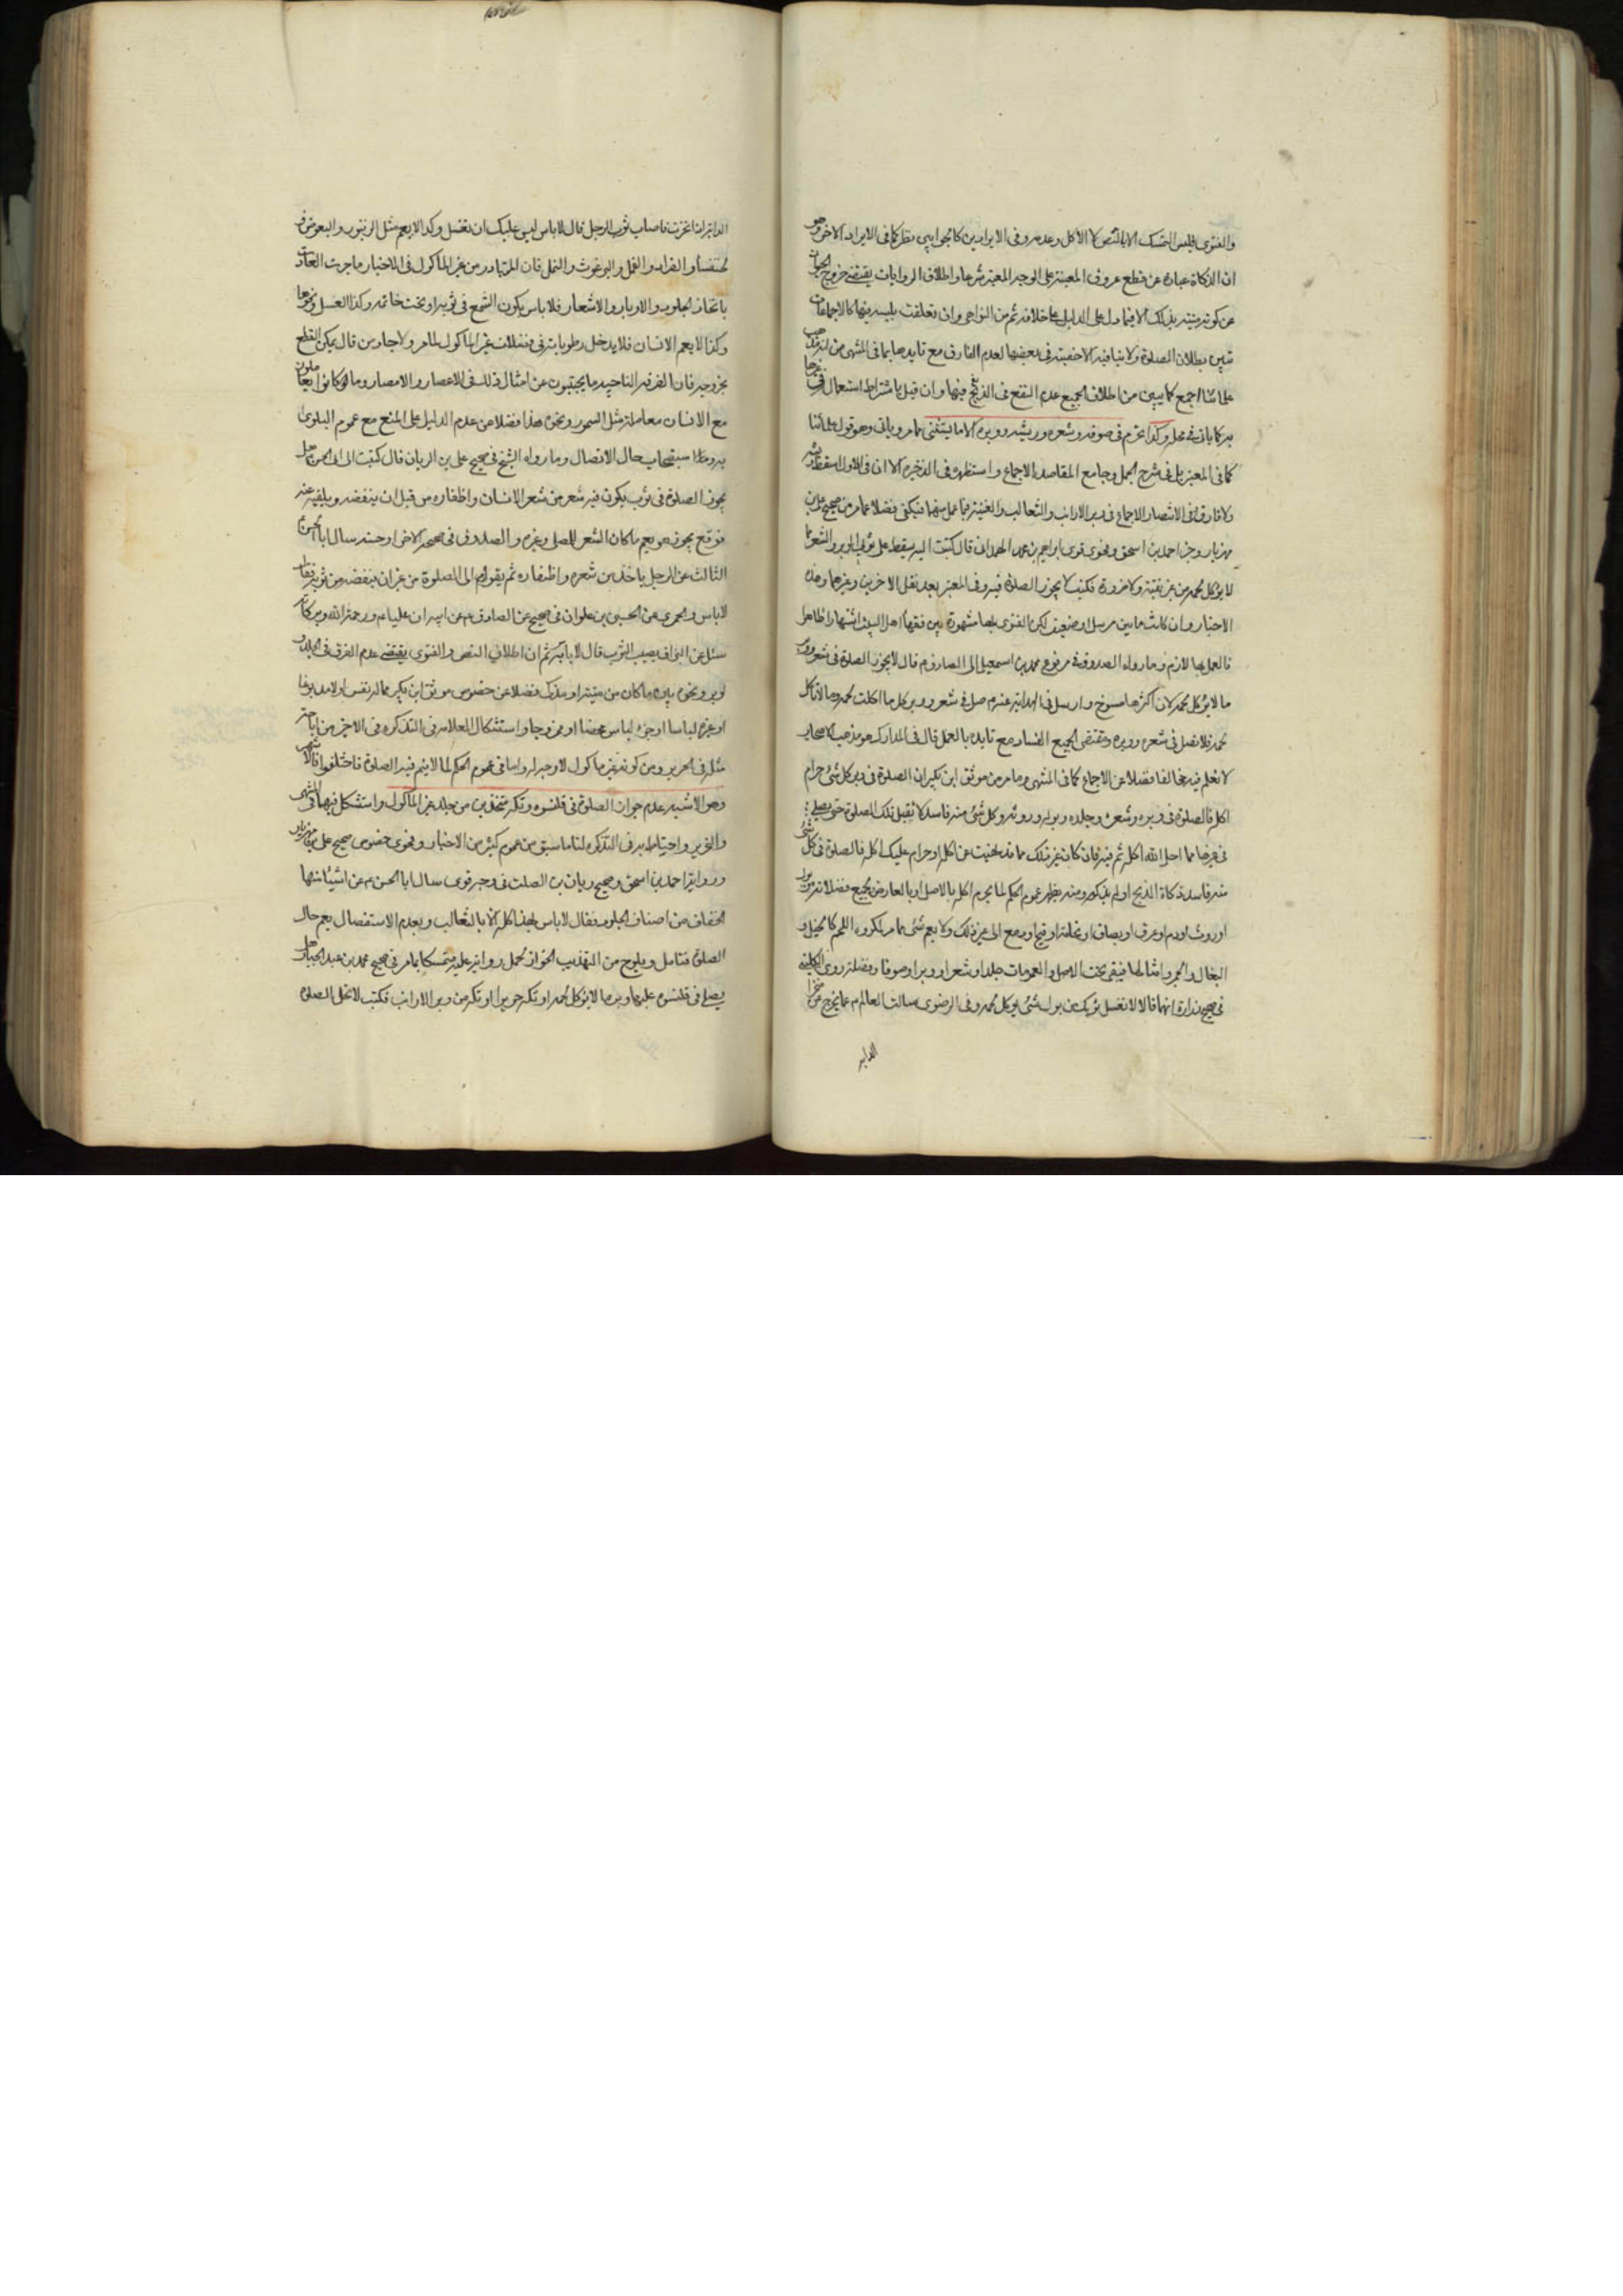 والفتوى فليس التمسك الا بالنص لا الأكل وعدمه وفى الايرادين كالجوابين نظر كما فى الايراد الاخر وهو
ان الذكاة عبارة عن قطع عروق المعينة على الوجه المعتبر شرعا واطلاق الروايات يقتضى خروج الحيوان
عن كونه ميتة بذلك الا فيما دل الدليل على خلافه ثم من النواهى وان تعلقت بلبسه فيها كالاجماعات
تبين بطلان الصلوة ولا ينافيه الاخفيته فى بعضها لعدم الفارق مع تايدها بما فى المنتهى من
علمائنا اجمع كما يبين من اطلاق الجميع عدم النفع فى الذبح فيها وان قيل باشتراط استعمال
به كما ياتى فى محله وكذا تحرم فى صوفه وشعره وريشه ووبره الا ما يستثنى مما مر وياتى وهو قول علمائنا
كما فى المعتبر بل فى شرح الجمل وجامع المقاصد الاجماع واستظهره فى الذخيرة الا ان فى الاول اسقط
ولا فارق وفى الانتصار الاجماع فى وبر الارانب والثعالب والغنية فيما عمل منهما فيكفى فضلا عما مر من صحيح على بن
مهزيار وخبر احمد بن اسحق وفحوى قوى ابراهيم بن محمد الهمدانى قال كتبت اليه يسقط على ثوبى الوبر والشعر مما
لا يؤكل لحمه من غير تقية ولا ضرورة فكتب لا يجوز الصلوة فيه وفى المعتبر بعد نقل الاخرين وغيرهما وهذه
الاخبار وان كانت ما بين مرسل او ضعيف لكن الفتوى بها مشهورة بين فقهاء اهل البيت اشتهارا ظاهرا
فالعمل بها لازم وما رواه الصدوق فى مرفوع محمد بن اسمعيل الى الصادق م قال لا يجوز الصلوة فى شعر ووبر
ما لا يؤكل لحمه لان اكثرها مسوخ وارسل فى الهداية عنه م صل فى شعر ووبر كل ما اكلت لحمه وما لا تاكل
لحمه فلا تصل فى شعره ووبره ومقتضى الجميع الفساد مع تايده بالعمل قال فى المدارك هو مذهب الاصحاب
لا نعلم فيه مخالفا فضلا عن الاجماع كما فى المنتهى وما مر من موثق ابن بكير ان الصلوة فى وبر كل شئ حرام
اكله فالصلوة فى وبره وشعره وجلده وبوله وروثه وكل شئ منه فاسد لا تقبل تلك الصلوة حتى يصلى
فى غيرها مما احل الله اكله ثم فيه فان كان غير ذلك مما قد نهيت عن اكله او حرام عليك اكله فالصلوة فى كل شئ
منه فاسد ذكاه الذبح او لم يذكه ومنه يظهر عموم الحكم لما يحرم اكله بالاصل او بالعارض بجميع فضلاته من بول
او روث او دم او عرق او بصاق او نخامة او قيح او دمع الى غير ذلك ولا يعم شئ مما مر لمكروه اللحم كالخيل و
البغال والحمر وامثالها فيبقى تحت الاصل والعمومات جلدا وشعرا ووبرا وصوفا وفضلة روى الكلينى
فى صحيح زرارة انهما قالا لا تغسل ثوبك من بول شئ يؤكل لحمه وفى الرضوى سالت العالم م عما يخرج من منخر
الدابة
الدابة اذا نخرت فاصاب ثوب الرجل قال لا باس ليس عليك ان تغسل وكذا لا يعم مثل الزنبور والبعوض و
الخنفساء والقراد والقمل والبرغوث والنمل فان المتبادر من غير الماكول فى الاخبار ما جرت العادة
باتخاذ الجلود والاوبار والاشعار فلا باس بكون الشمع فى ثوبه او تحت خاتمه وكذا العسل ونحوها
وكذا لا يعم الانسان فلا يدخل رطوباته فى فضلات غير الماكول لما مر ولا جاد من قال يمكن القطع
بخروجه فان الفرقة الناجية ما يجتنبون عن امثال ذلك فى الاعصار والامصار وما كانوا يعاملون
مع الانسان معاملة مثل السمور ونحوه هذا فضلا من عدم الدليل على المنع مع عموم البلوى
به وطرا استصحاب حال الاتصال وما رواه الشيخ فى صحيح على بن الريان قال كتبت الى ابى الحسن هل
يجوز الصلوة فى ثوب يكون فيه شعر من شعر الانسان واظفاره من قبل ان ينفضه ويلقيه عنه
فوقع يجوز هو يعم ما كان الشعر للمصلى وغيره والصدوق فى صحيحه الاخر او حسنه سال ابا الحسن
الثالث عن الرجل ياخذ من شعره واظفاره ثم يقوم الى الصلوة من غير ان ينفضه من ثوبه فقال
لا باس والحميرى عن الحسين بن علوان فى صحيح عن الصادق م عن ابيه ان عليا م ورحمة الله وبركاته
سئل عن البزاق يصيب الثوب قال لا باس به ثم ان اطلاق النص والفتوى يقتضى عدم الفرق فى الجلد و
الوبر ونحوه بين ما كان من ميتة او مذكى فضلا عن خصوص موثق ابن بكير مما له نفس او لا مدبوغا
او غيره لباسا او جزء لباس محضا او ممزوجا واستشكال العلامة فى التذكرة فى الاخير من اباحة
مثله فى الحرير ومن كونه غير ماكول لا وجه له واما فى عموم الحكم لما لا يتم فيه الصلوة فاختلفوا فالاشهر
وهو الاشبه عدم جواز الصلوة فى قلنسوه وتكه متخذين من جلد غير الماكول واستشكل فيهما فى المنتهى
والتحرير واحتياط به فى التذكرة لنا ما سبق من عموم كثير من الاخبار وفحوى خصوص صحيح على بن مهزيار
ورواية احمد بن اسحق وصحيح ريان بن الصلت فى وجه قوى سال ابا الحسن م عن اشياء منها
الخفاف من اصناف الجلود فقال لا باس بهذا كله الا بالثعالب وبعدم الاستفصال يعم حال
الصلوة فتامل ويلوح من التهذيب الجواز لحمل رواية عليه متمسكا بما مر فى صحيح محمد بن عبد الجبار هل
يصلى فى قلنسوه عليها وبر ما لا يؤكل لحمه او تكه حرير او تكه من وبر الارانب فكتب لا تحل الصلوة